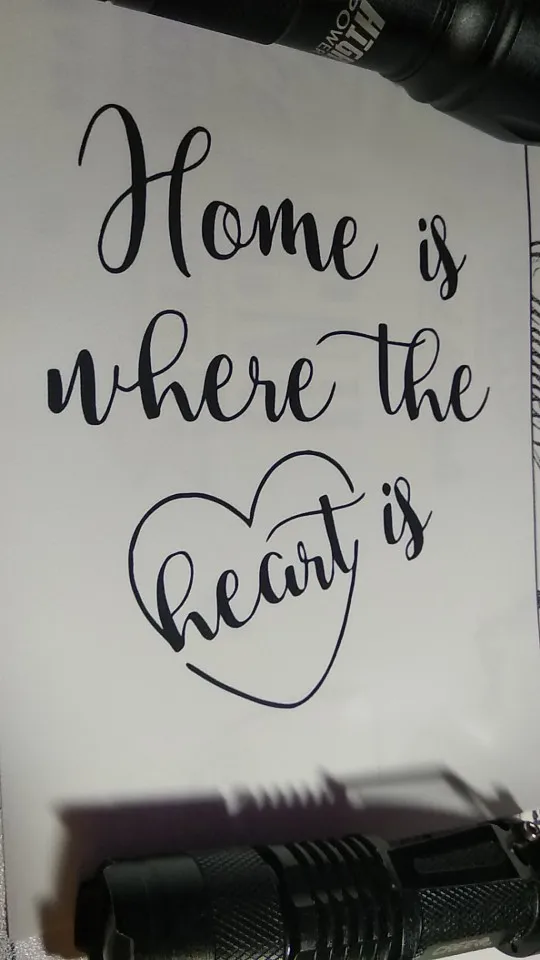 HIGH
POWER
Home is
where the
heart is